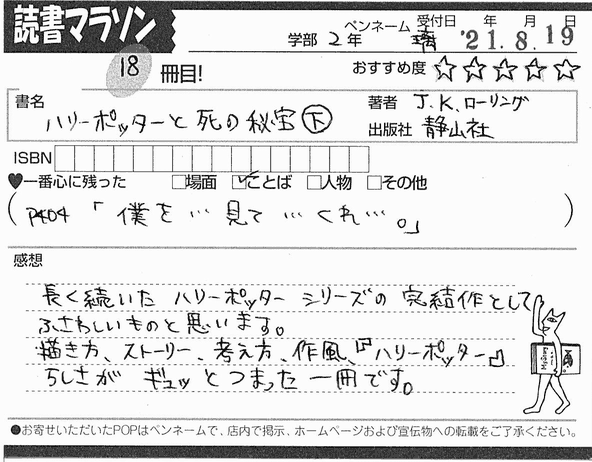 読書マラソン
18冊目!
学部 2年
ペンネーム 璃
受付日 年 月 日
'21.8.19
おすすめ度 ☆☆☆☆☆
書名
ハリーポッターと死の秘宝(下)
著者 J.K.ローリング
出版社 静山社
ISBN
♥一番心に残った □場面 ☑ことば □人物 □その他
(P404「僕を…見て…くれ…。」)
感想
長く続いたハリーポッターシリーズの完結作として
ふさわしいものと思います。
描き方、ストーリー、考え方、作風、『ハリーポッター』
らしさがギュッとつまった一冊です。
●お寄せいただいたPOPはペンネームで、店内で掲示、ホームページおよび宣伝物への転載をご了承ください。